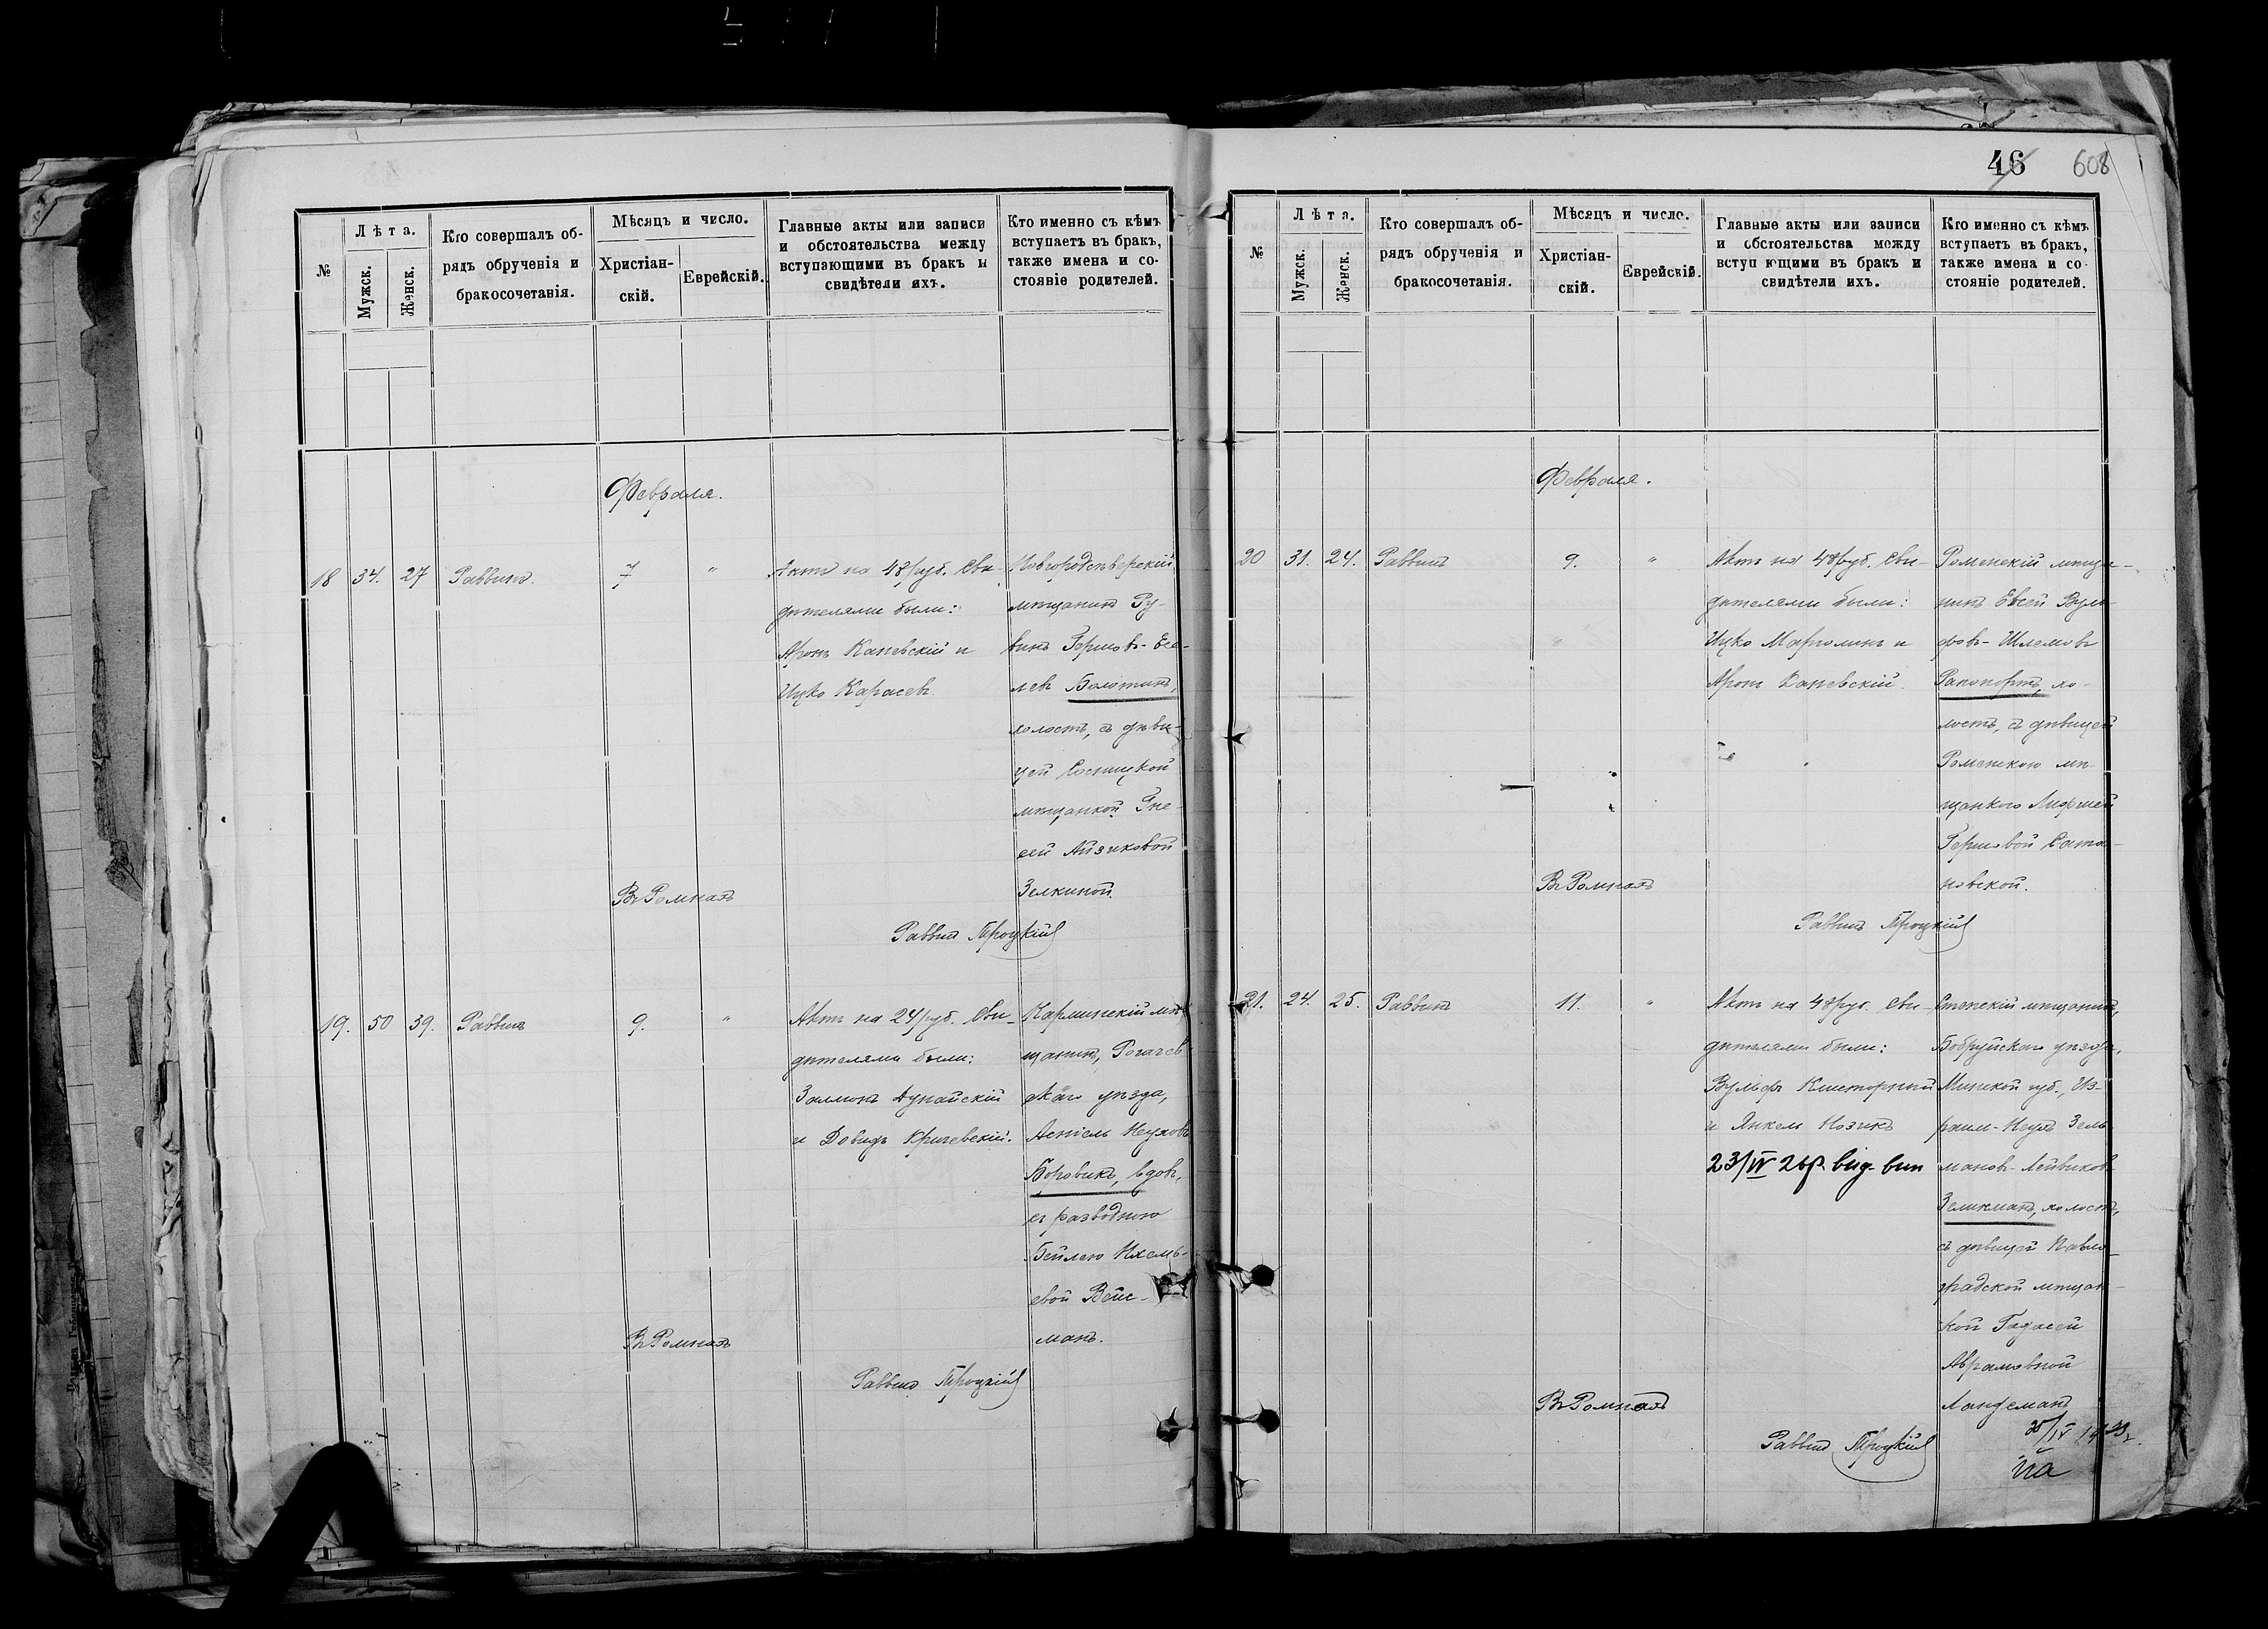 №
Лѣта.
Мужск.
Женск.
Кто совершалъ об-
рядъ обрученія и
бракосочетанія.
Мѣсяцъ и число.
Христіан-
скій.
Еврейскій.
Главные акты или записи
и обстоятельства между
вступающими въ бракъ и
свидѣтели ихъ.
Кто именно съ кѣмъ
вступаетъ въ бракъ,
также имена и со-
стояніе родителей.
Февраля.
18 34. 27 Раввинъ. 7 "
Актъ на 48 руб. Сви-
дѣтелями были:
Аронъ Каневскій и
Ицко Карасевъ
Новгородсѣверскій
мѣщанинъ Ру-
винъ Гершовъ-Есе-
левъ Болотинъ,
холостъ, съ дѣви-
цей Сосницкой
мѣщанкой Гне-
сей Айзиковой
Зелкиной.
Въ Ромнахъ
Раввинъ Троцкій
19. 50 39. Раввинъ 9. "
Актъ на 24 руб. Сви-
дѣтелями были:
Залманъ Дунайскій
и Довидъ Кричевскій.
мѣ-
щанинъ, Рогачев-
скаго уѣзда,
Боровикъ, вдов.,
съ разводною
Бейлею
евой Вейс-
манъ.
Въ Ромнахъ
Раввинъ Троцкій
46 608
№
Лѣта.
Мужск.
Женск.
Кто совершалъ об-
рядъ обрученія и
бракосочетанія.
Мѣсяцъ и число.
Христіан-
скій.
Еврейскій.
Главные акты или записи
и обстоятельства между
вступ ющими въ бракъ и
свидѣтели ихъ.
Кто именно съ кѣмъ
вступаетъ въ бракъ,
также имена и со-
стояніе родителей.
Февраля.
20 31. 24. Раввинъ 9. "
Актъ на 48 руб. Сви-
дѣтелями были:
Ицко Марголинъ и
Аронъ Каневскій.
Роменскій мѣща-
нинъ Евсей Вуль-
фовъ-Шлемовъ
Рапопортъ, хо-
лостъ, съ дѣвицей
Роменскою мѣ-
щанкою Лифшей
Гершовой Сата-
новской.
Въ Ромнахъ
Раввинъ Троцкій
21. 24. 25. Раввинъ 11. "
Актъ на 48 руб. Сви-
дѣтелями были:
Вульфъ
и Янкель Нозикъ
23/IV 26р. вид. вип
мѣщанинъ,
Бобруйскаго уѣзда,
Минской губ., Из-
раиль-Неухъ Зель-
мановъ-Лейвиковъ
Зеликманъ, холостъ,
съ дѣвицей Павло-
градской мѣщан-
кой Гадасей
Абрамовной
Ландсманъ
Въ Ромнахъ
Раввинъ Троцкій